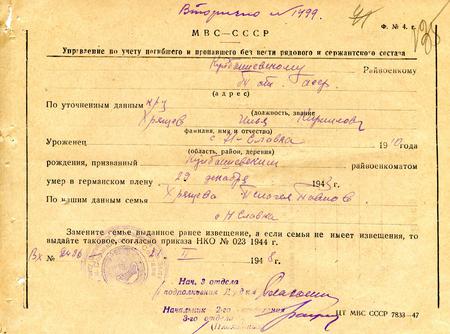 Вторично № 1499.
МВС—СССР
Ф. № 4. г.
Управление по учету погибшего и пропавшего без вести рядового и сержантского состава
Куйбышевскому Райвоенкому
(адрес)
По уточненным данным кр-ц
(должность, звание
Хрящев Илья Кириллов
фамилия, имя и отчество)
Уроженец с Н-Славка 1910 года
(область, район, деревня)
рождения, призванный Куйбышевским райвоенкоматом
умер в германском плену 29 декабря 1943 г.
По нашим данным семья
Хрящева Пелагея
с Н Славка
Замените семье выданное ранее извещение, а если семья не имеет извещения, то
выдайте таковое, согласно приказа НКО № 023 1944 г.
Вх № 2436 21 II 1948 г.
Нач. 3 отдела
подполковник
Начальник 2-го отделения
3-го отдела
ЦТ МВС СССР 7833—47